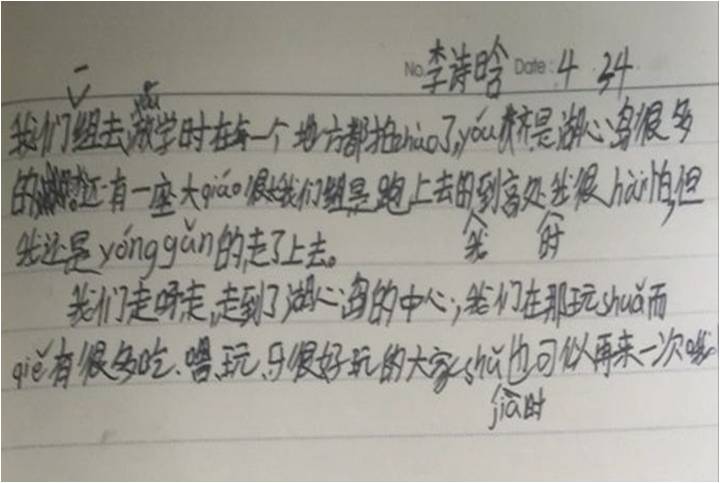 No. 李诗晗 Date: 4 . 24
一
yóu
我们组去游学时在每一个地方都拍zhào了,yóu其是湖心岛很多
的还有一座大qiáo很我们组是跑上去的到高处我很hài怕,但
我 时
我还是yǒng gǎn的走了上去。
我们走呀走,走到了湖心岛的中心,我们在那玩shuǎ而
qiě有很多吃、喝、玩、乐很好玩的大家shǔ也可以再来一次哦
jià时